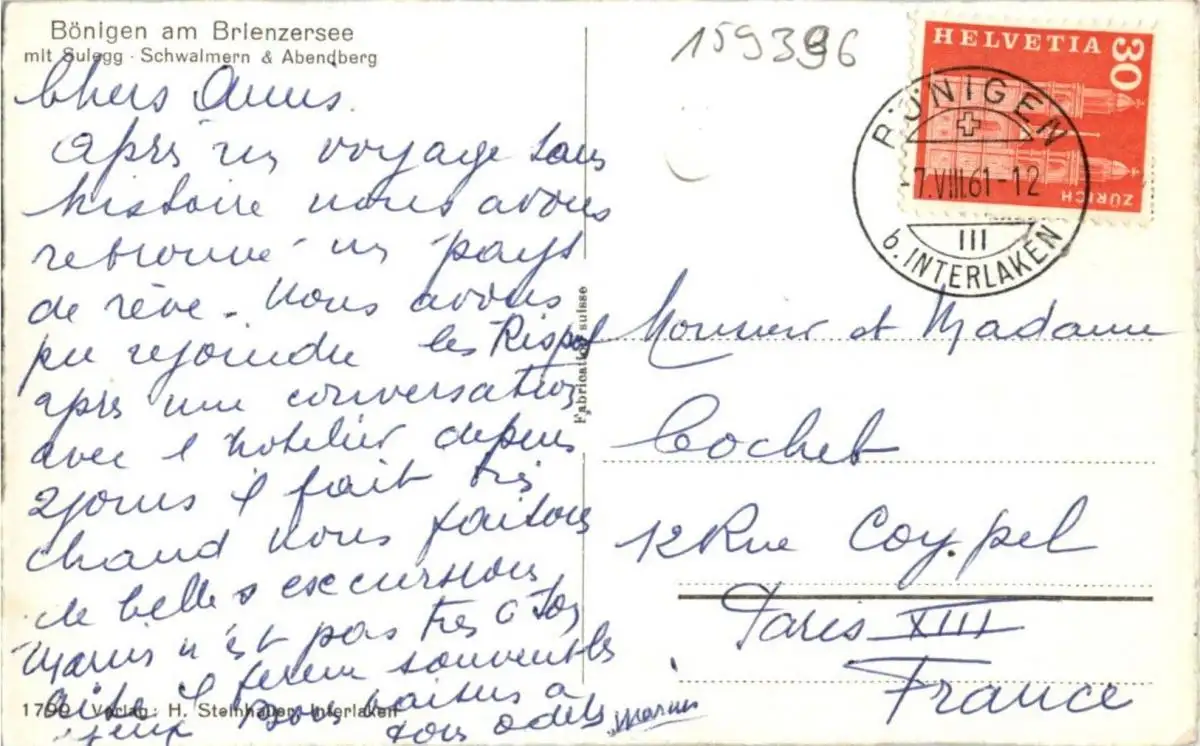 Bönigen am Brienzersee
mit Sulegg · Schwalmern & Abendberg
Chers Amis.
après un voyage sans
histoire nous avons
retrouvé un pays
de rêve. Nous avons
pu rejoindre les
après une conversation
avec l hotelier depuis
2 jours il fait très
chaud nous faisons
de belles excursions
Marius n'est pas très à
il ferme souvent les
yeux Bons baisers à
tous Odels Marius
1790 Verlag: H. Steinhauer, Interlaken
Fabrication suisse
HELVETIA 30
ZÜRICH
BÖNIGEN
7.VIII.61-12
III
b. INTERLAKEN
Monsieur et Madame
Cochet
12 Rue Coypel
Paris XIII
France